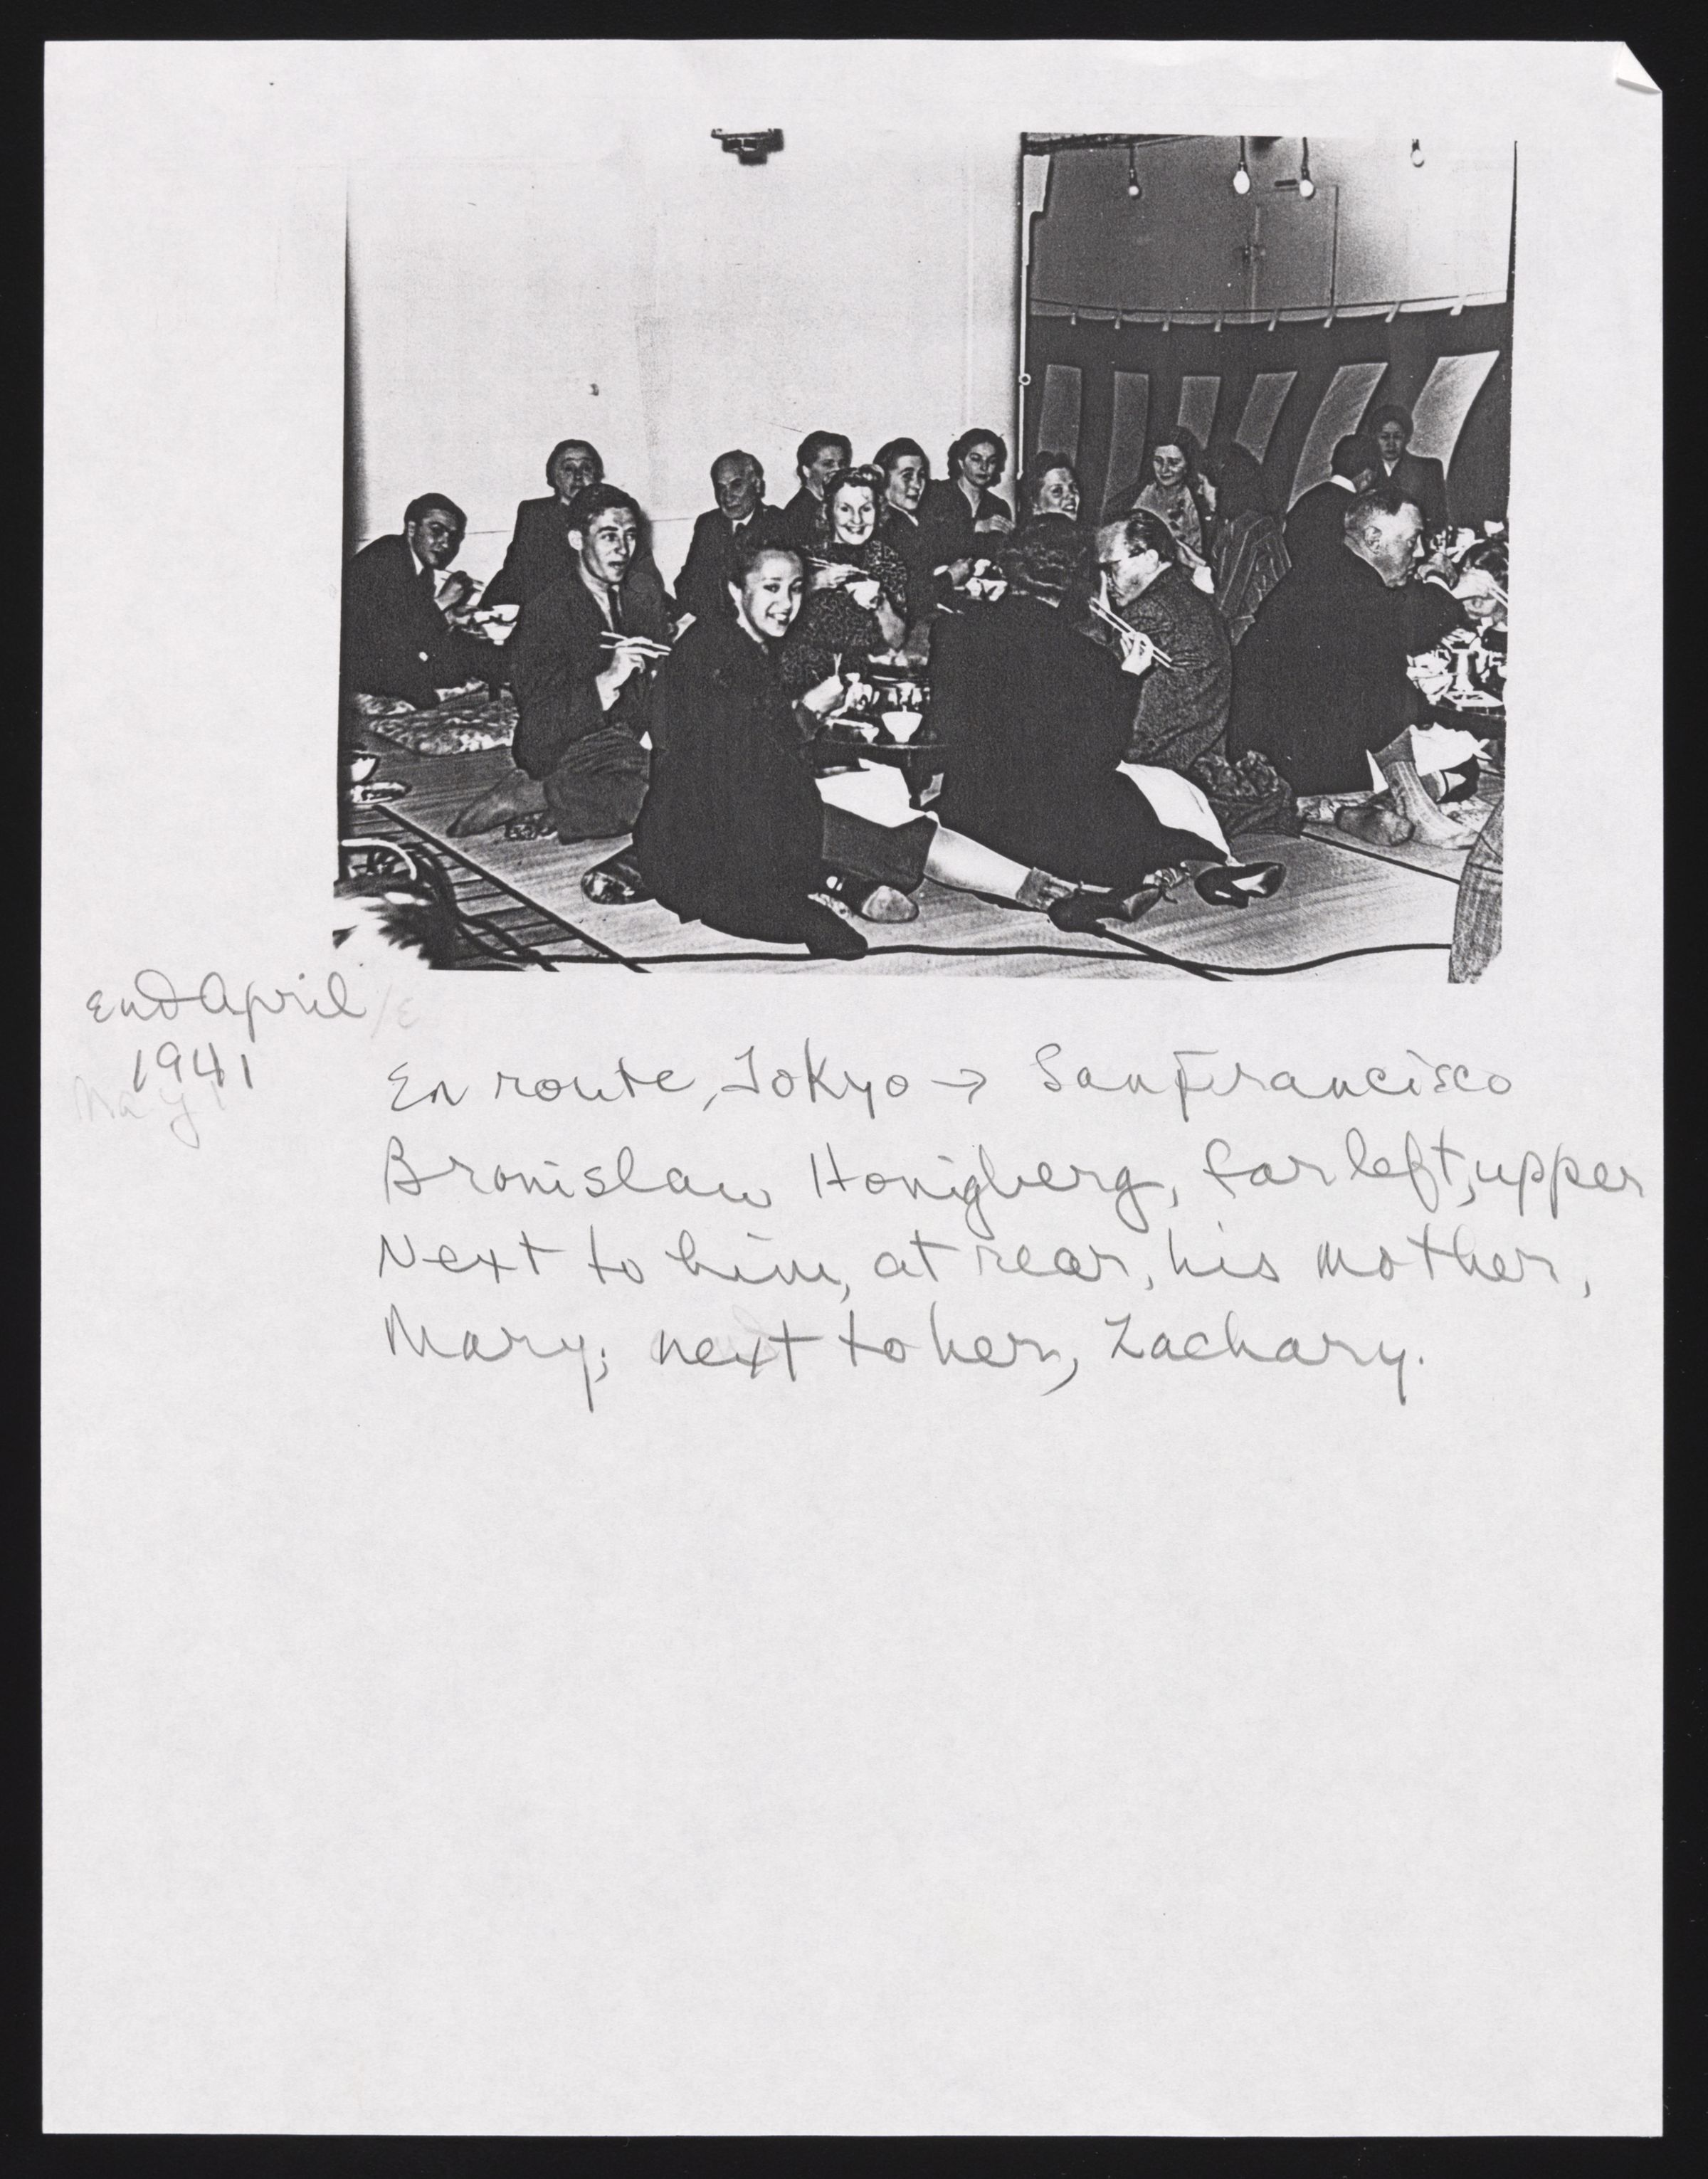 End April
1941
May
En route, Tokyo → San Francisco
Bronislaw Honigberg, far left, upper
Next to him, at rear, his mother,
Mary; next to her, Zachary.